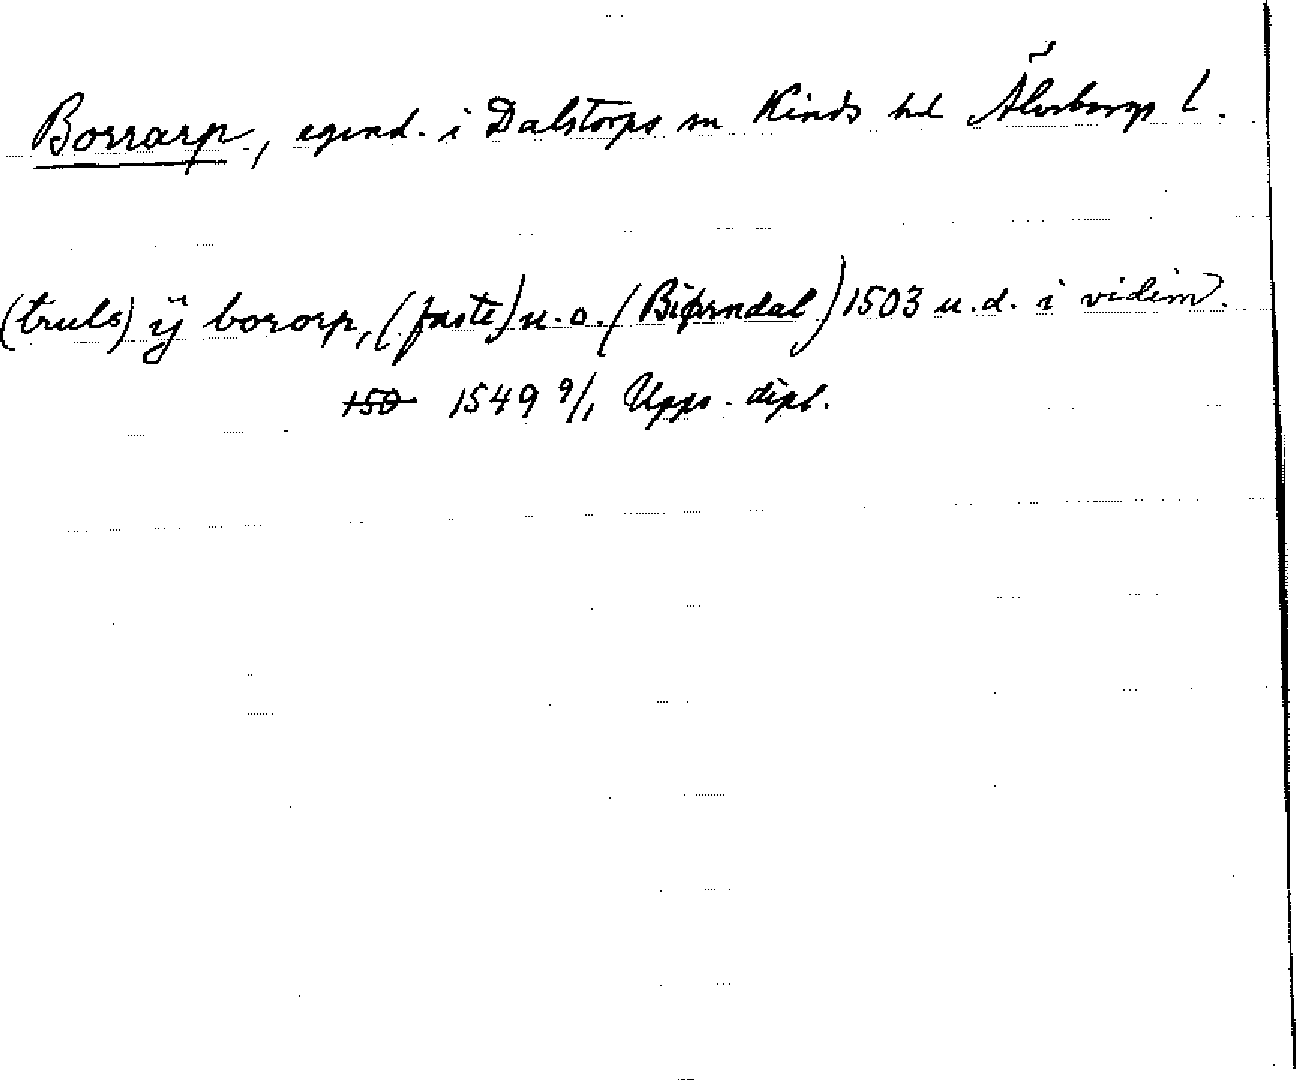 Borrarp, egend. i Dalstorps sn Kinds hd Älvsborgs l.
(truls) ÿ bororp, (faste) u. o. (Biørndal) 1503 u. d. i vidim.
150 1549 9/1 Upps. dipl.